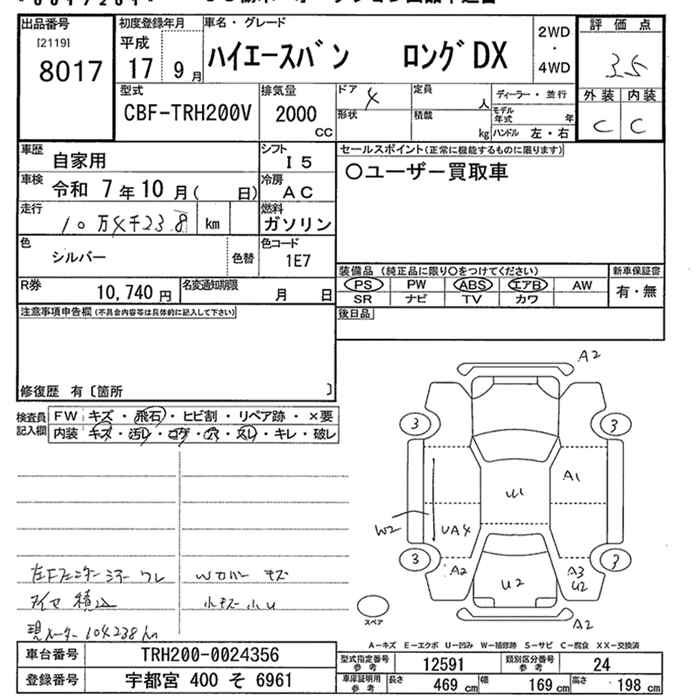 出品番号 初度登録年月 車名・グレード 2WD ・ 4WD 評価点
[2119] 8017 平成 17 9月 ハイエースバン ロングDX 3.5
型式 排気量 ドア 4 定員 人 ディーラー・並行 外装 内装
CBF-TRH200V 2000 CC 形状 積載 kg モデル年式 年 C C
ハンドル 左・右
車歴 自家用 シフト I5 セールスポイント(正常に機能するものに限ります)
車検 令和 7年10月( 日) 冷房 AC ○ユーザー買取車
走行 10万4千238 km 燃料 ガソリン
色 シルバー 色替 色コード 1E7
R券 10,740円 名変通知期限 月 日
装備品(純正品に限り○をつけてください) 新車保証書
PS PW ABS エアB AW 有・無
SR ナビ TV カワ
注意事項申告欄(不具合内容等は具体的に記入して下さい) 後日品
修復歴 有〔箇所 〕
検査員記入欄 FW キズ・飛石・ヒビ割・リペア跡・×要
内装 キズ・汚レ・コゲ・穴・スレ・キレ・破レ
A2
3 3
A1
U1
W2
UA4
3 3
A2 U2 A3 U2
A2
スペア
タイヤ積込 小キズ小U
現メーター104238km
A－キズ E－エクボ U－凹み W－補修跡 S－サビ C－腐食 XX－交換済
車台番号 TRH200-0024356 型式指定番号参考 12591 類別区分番号参考 24
登録番号 宇都宮 400 そ 6961 車庫証明用参考 長さ 469 cm 幅 169 cm 高さ 198 cm